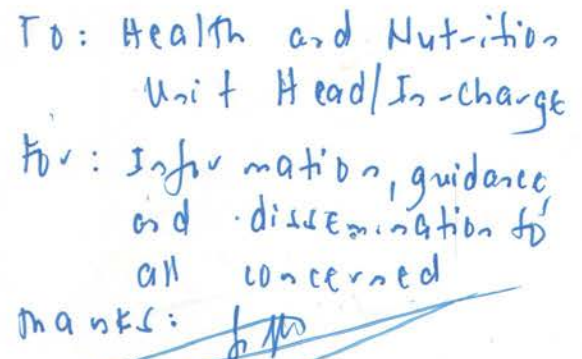 To: Health and Nutrition
Unit Head/In-charge
For: Information, guidance,
and dissemination to
all concerned
Thanks: